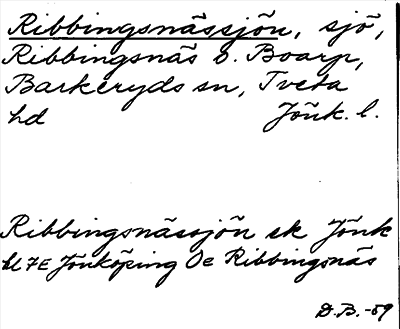 Ribbingsnässjön, sjö,
Ribbingsnäs o. Boarp,
Barkeryds sn, Tveta
hd Jönk. l.
Ribbingsnässjön ek Jönk
bl 7E Jönköping Oe Ribbingsnäs
D.B.-59